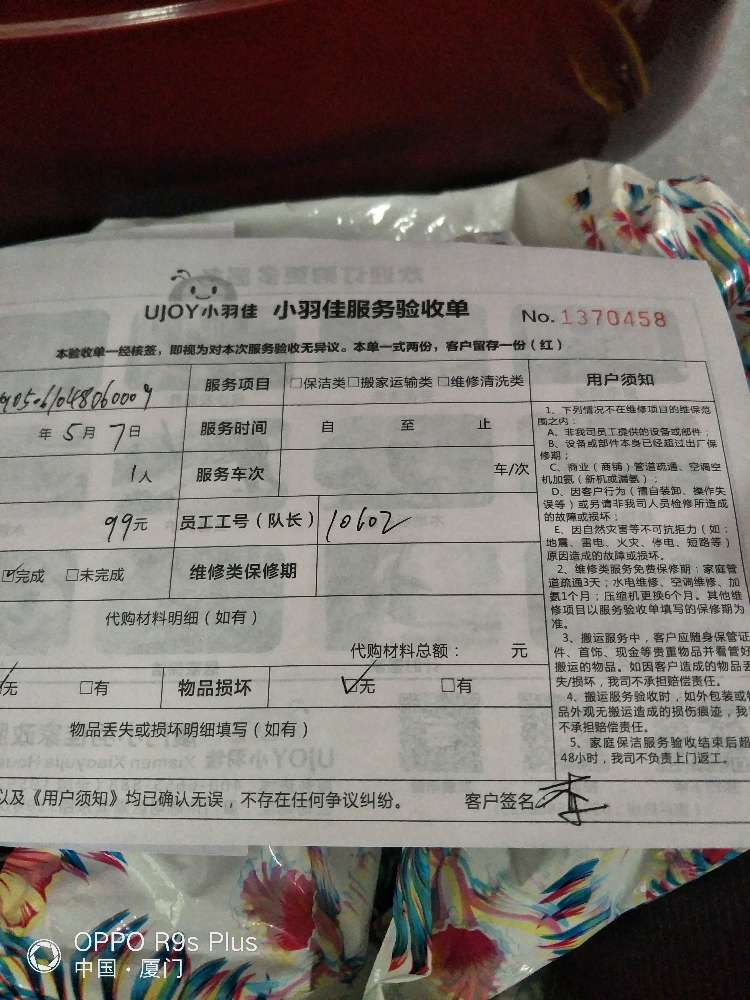 UJOY小羽佳 小羽佳服务验收单 No.1370458
本验收单一经核签，即视为对本次服务验收无异议。本单一式两份，客户留存一份（红）
服务项目 □保洁类□搬家运输类□维修清洗类
年5月7日 服务时间 自 至 止
1人 服务车次 车/次
99元 员工工号（队长） 10602
☑完成 □未完成 维修类保修期
代购材料明细（如有）
代购材料总额： 元
无 □有 物品损坏 ☑无 □有
物品丢失或损坏明细填写（如有）
以及《用户须知》均已确认无误，不存在任何争议纠纷。 客户签名：李
用户须知
1、下列情况不在维修项目的维保范
围之内：
A、非我司员工提供的设备或部件；
B、设备或部件本身已经超过出厂保
修期；
C、商业（商铺）管道疏通、空调空
机加氨（新机或漏氨）；
D、因客户行为（擅自装卸、操作失
误等）或另请非我司人员检修所造成
的故障或损坏；
E、因自然灾害等不可抗拒力（如：
地震、雷电、火灾、停电、短路等）
原因造成的故障或损坏。
2、维修类服务免费保修期：家庭管
道疏通3天；水电维修、空调维修、加
氨1个月；压缩机更换6个月。其他维
修项目以服务验收单填写的保修期为
准。
3、搬运服务中，客户应随身保管证
件、首饰、现金等贵重物品并看管好
搬运的物品。如因客户造成的物品丢
失/损坏，我司不承担赔偿责任。
4、搬运服务验收时，如外包装或
品外观无搬运造成的损伤痕迹，我
不承担赔偿责任。
5、家庭保洁服务验收结束后超
48小时，我司不负责上门返工。
OPPO R9s Plus
中国·厦门